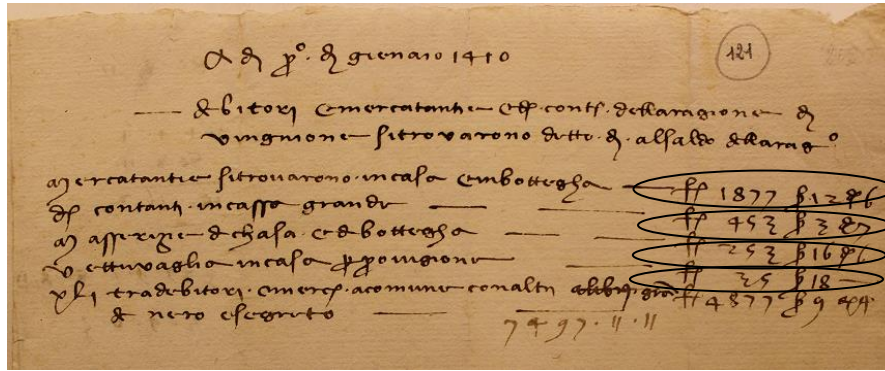 A dì pº di giennaio 1410
121
debitori e mercatantie e dr contti della ragione di
vingnione si trovarono detto dì al saldo della ragº
mercatantie si trovarono in casa e in bottegha — ff 1877 ß 12 d 6
dr contanti in cassa grande — ff 453 ß 3 d 7
masserizie di chasa e di bottegha — ff 253 ß 16 d 6
vettuvaglia in casa p provigione — ff 35 ß 18 —
tra debitori e merc a comune con altri ff 4877 ß 9 d 4
di nero e segreto —
7497 · 11 · 11